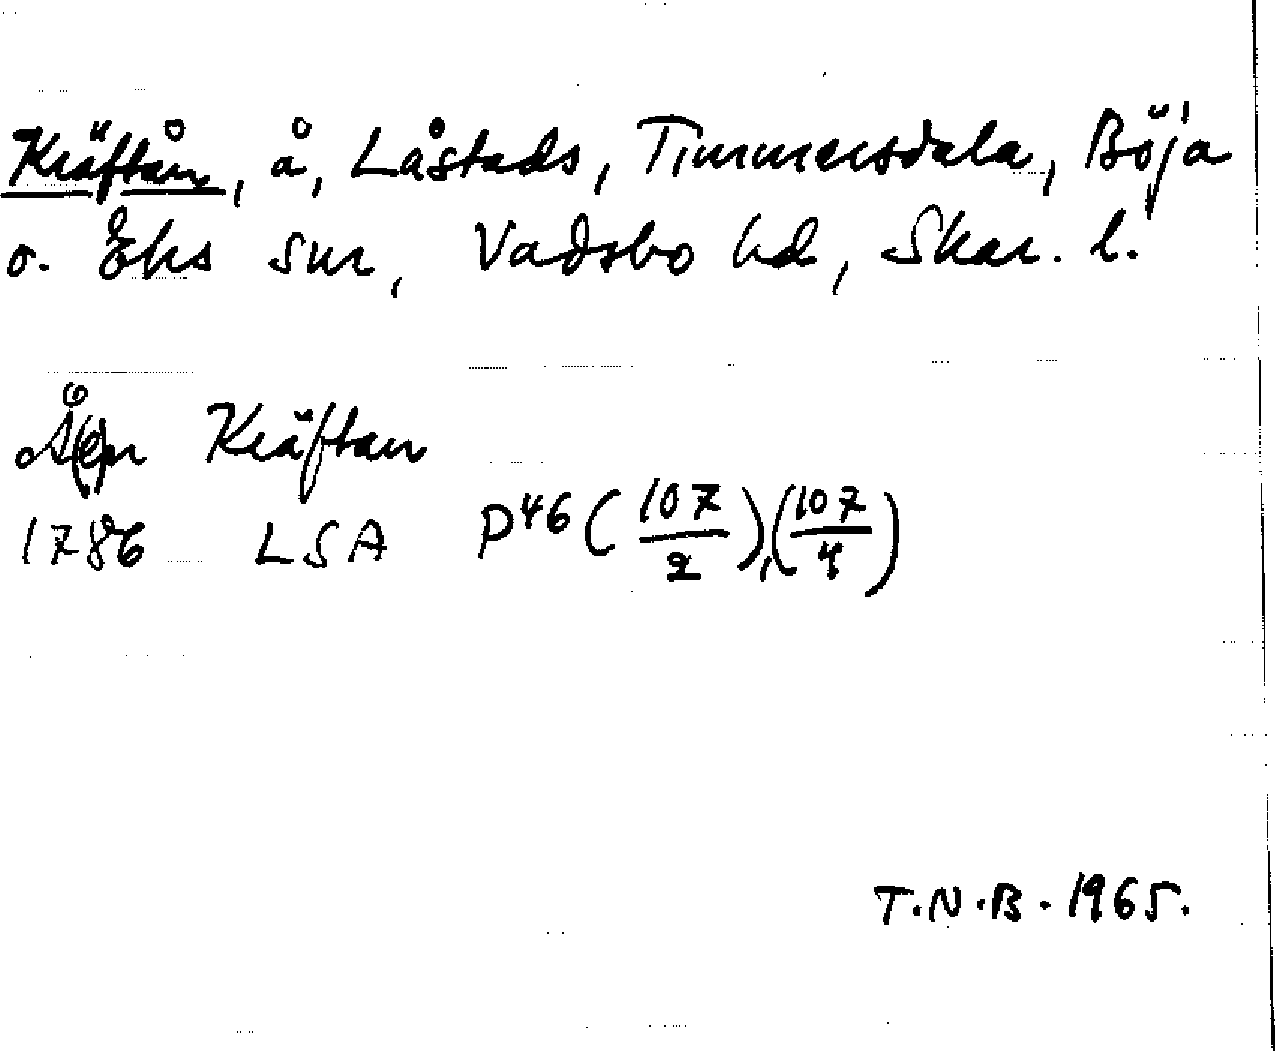 Kräftån, å, Låstads, Timmersdala, Böja
o. Eks snr, Vadsbo hd, Skar. l.
Å(e)n Kräftan
1786 LSA P46 (107/2), (107/4)
T.N.B. 1965.